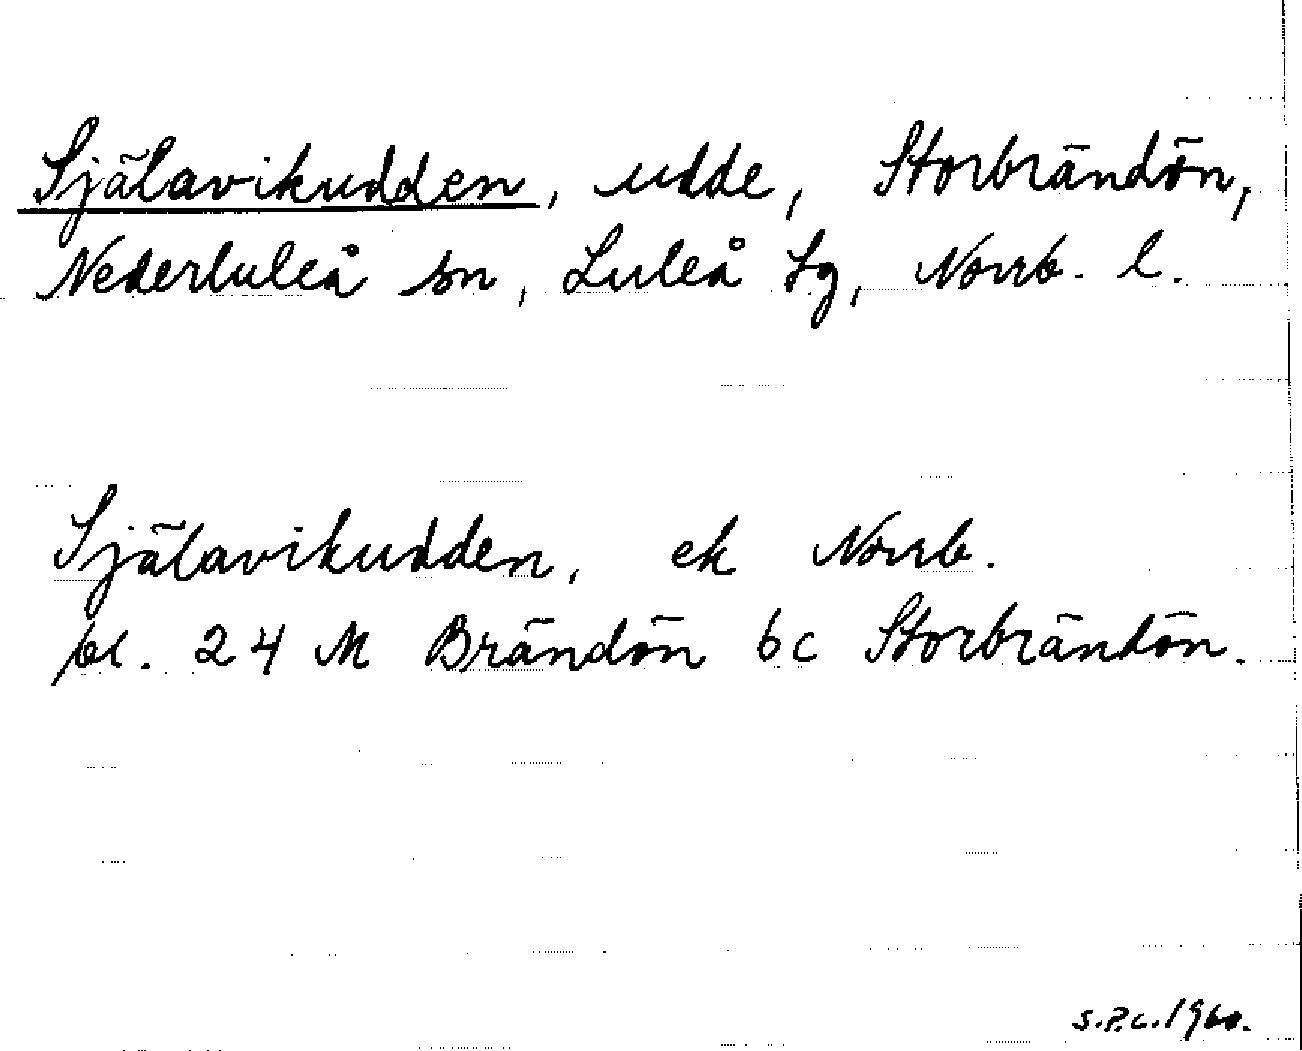 Själavikudden, udde, Storbrändön,
Nederluleå sn, Luleå tg, Norrb. l.
Själavikudden, ek Norrb.
bl. 24 M Brändön 6c Storbrändön.
S.P.C. 1960.